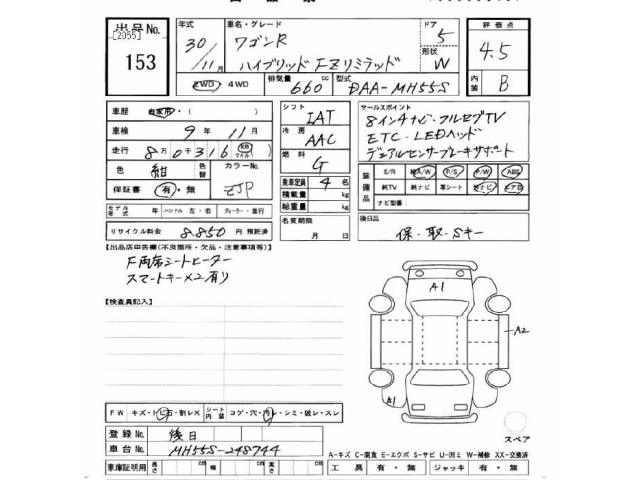 出品No. 年式 車名・グレード ドア 評価点
[2055] 30/11月 ワゴンR 5
形状 4.5
153 ハイブリッドFZリミテッド W
2WD 4WD 排気量 660 cc 型式 DAA-MH55S 内装 B
車歴 自家用・( ) シフト IAT セールスポイント
車検 9年 11月 冷房 AAC 8インチナビ・フルセグTV
走行 8万0千316 km マイル 燃料 G ETC・LEDヘッド
デュアルセンサーブレーキサポート
色 紺 色替 カラーNo. ZJP 乗車定員 4名 装備品 S/R 純A/W P/S P/W ABS
保証書 有・無 積載量 kg 純TV 純ナビ 革シート 社ナビ エアB
総重量 kg ナビ型番
モデル年式 年 ハンドル 左・右 ディーラー・並行 名変期限 後日品
リサイクル料金 8.850 円 預託済 月 日 保・取・Sキー
【出品店申告欄(不良箇所・欠品・注意事項等)】
F両席シートヒーター
スマートキー×2有り
A1
【検査員記入】
A2
A1
FW キズ・トビ石・割レX シート内装 コゲ・穴・汚レ・シミ・破レ・スレ
登録No. 後日 スペア
車台No. MH55S-248744 A-キズ C-腐食 E-エクボ S-サビ U-凹ミ W-補修 XX-交換済
車庫証明用 長さ cm 幅 cm 高さ cm 工具 有・無 ジャッキ 有・無